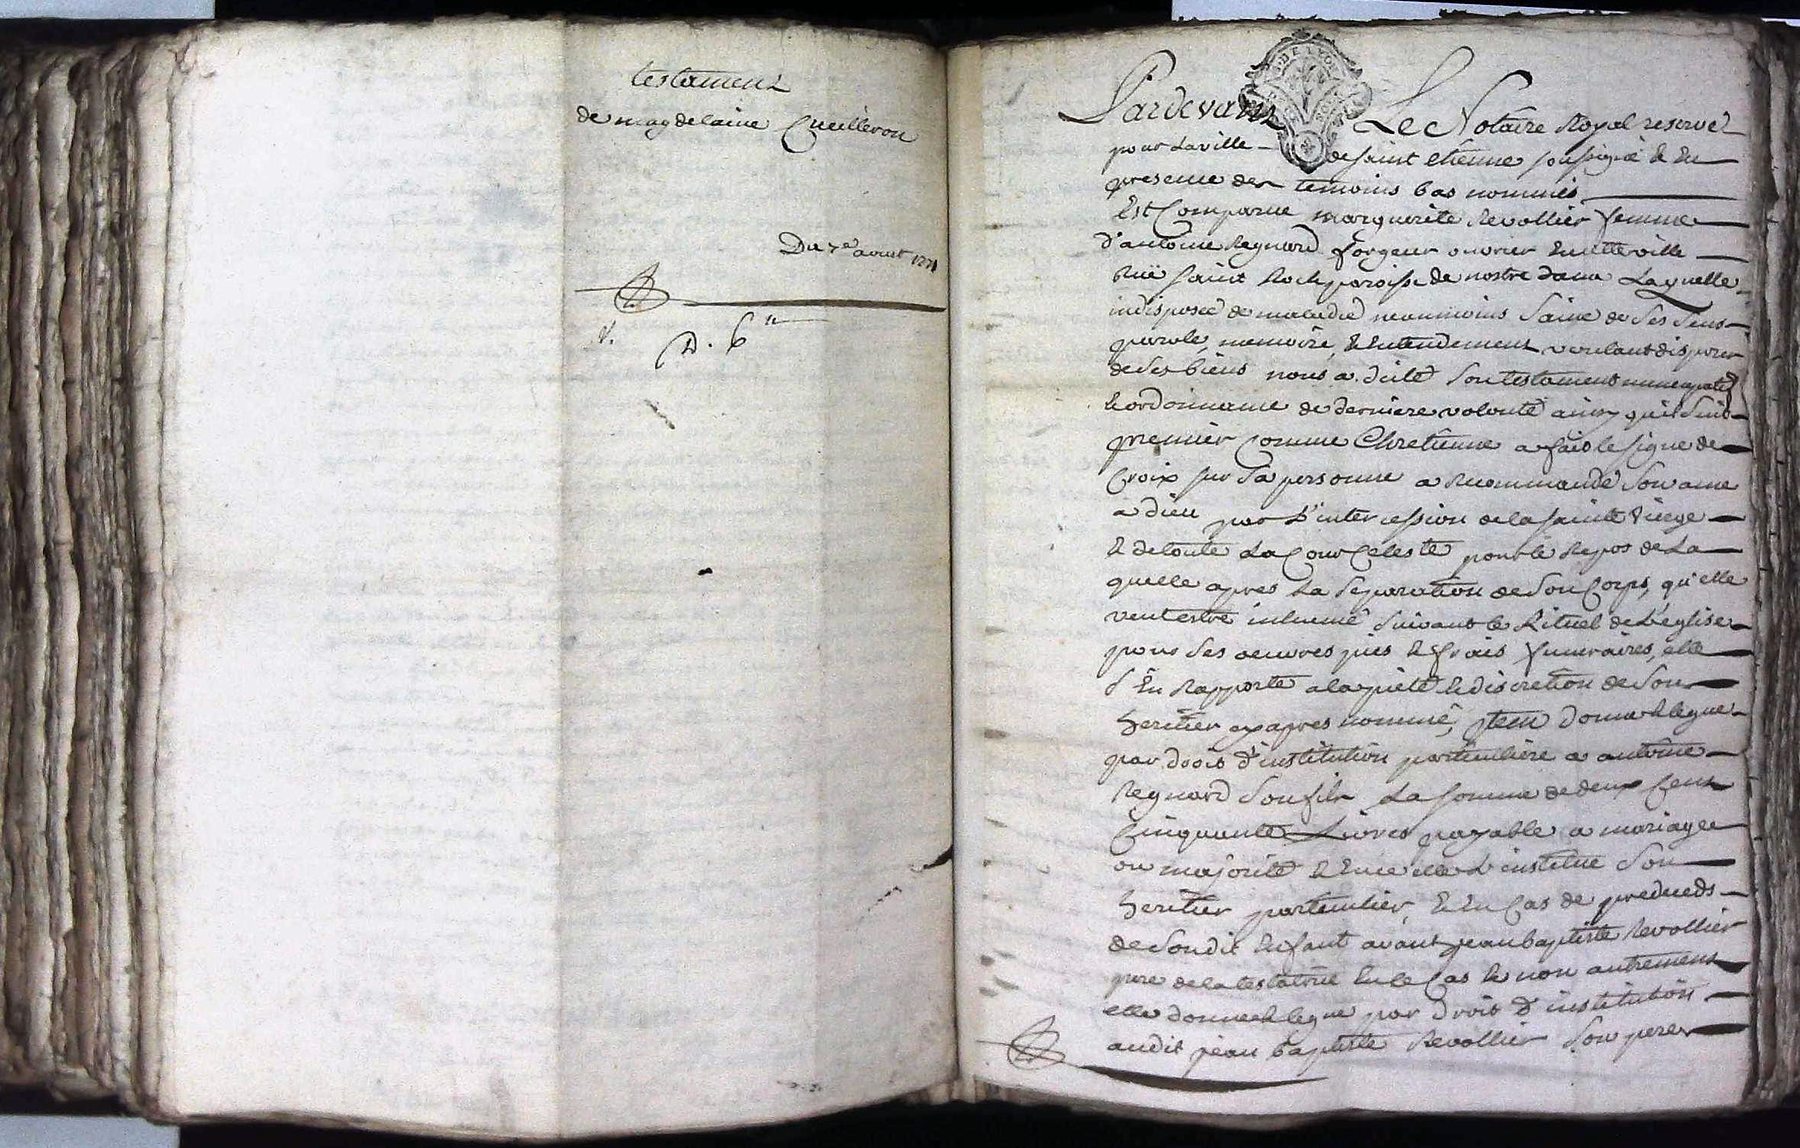 testament
de magdelaine Cueilleron
Du 7e aoust 1771
D. 6
Pardevant Le Notaire Royal reservé
pour La ville de saint etienne soussigné & en
presence des temoins bas nommés
Est Comparue marguerite Revollier femme
d'antoine Regnard forgeur ouvrier en cette ville
Ruë saint Roch paroisse de nostre dame Laquelle
indisposée de maladie neanmoins saine de ses sens
parole, memoire, & entendement voulant disposer
de ses biens nous a dicté son testament nuncupatif
& ordonnance de derniere volonté ainsy quil suit
premier comme Chretienne a fait le signe de
Croix sur sa personne a recommandé son ame
a dieu par L'intercession de la sainte vierge
& de toute La Cour Celeste pour le Repos de La
quelle apres La separation de son Corps, qu'elle
veut estre inhumé suivant le Rituel de L'eglise
pour ses oeuvres pies & frais funeraires, elle
s'En Rapporte a la pieté & discretion de son
heritier cy apres nommé, Item donne & legue
par droit d'institution particuliere a antoine
Regnard son fils La somme de deux Cent
Cinquante Livres payable a mariage
ou majorité & en ce elle L'institue son
heritier particulier, & En Cas de predeceds
de son dit Enfant avant jean baptiste Revollier
pere de la testatrice En le Cas & non autrement
elle donne & legue par droit d'institution
audit jean baptiste Revollier son pere